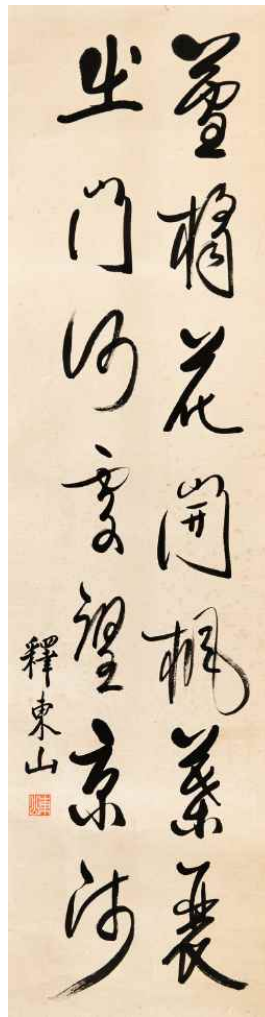 蘆橘花開楓葉衰
出門何處望京師
釋東山